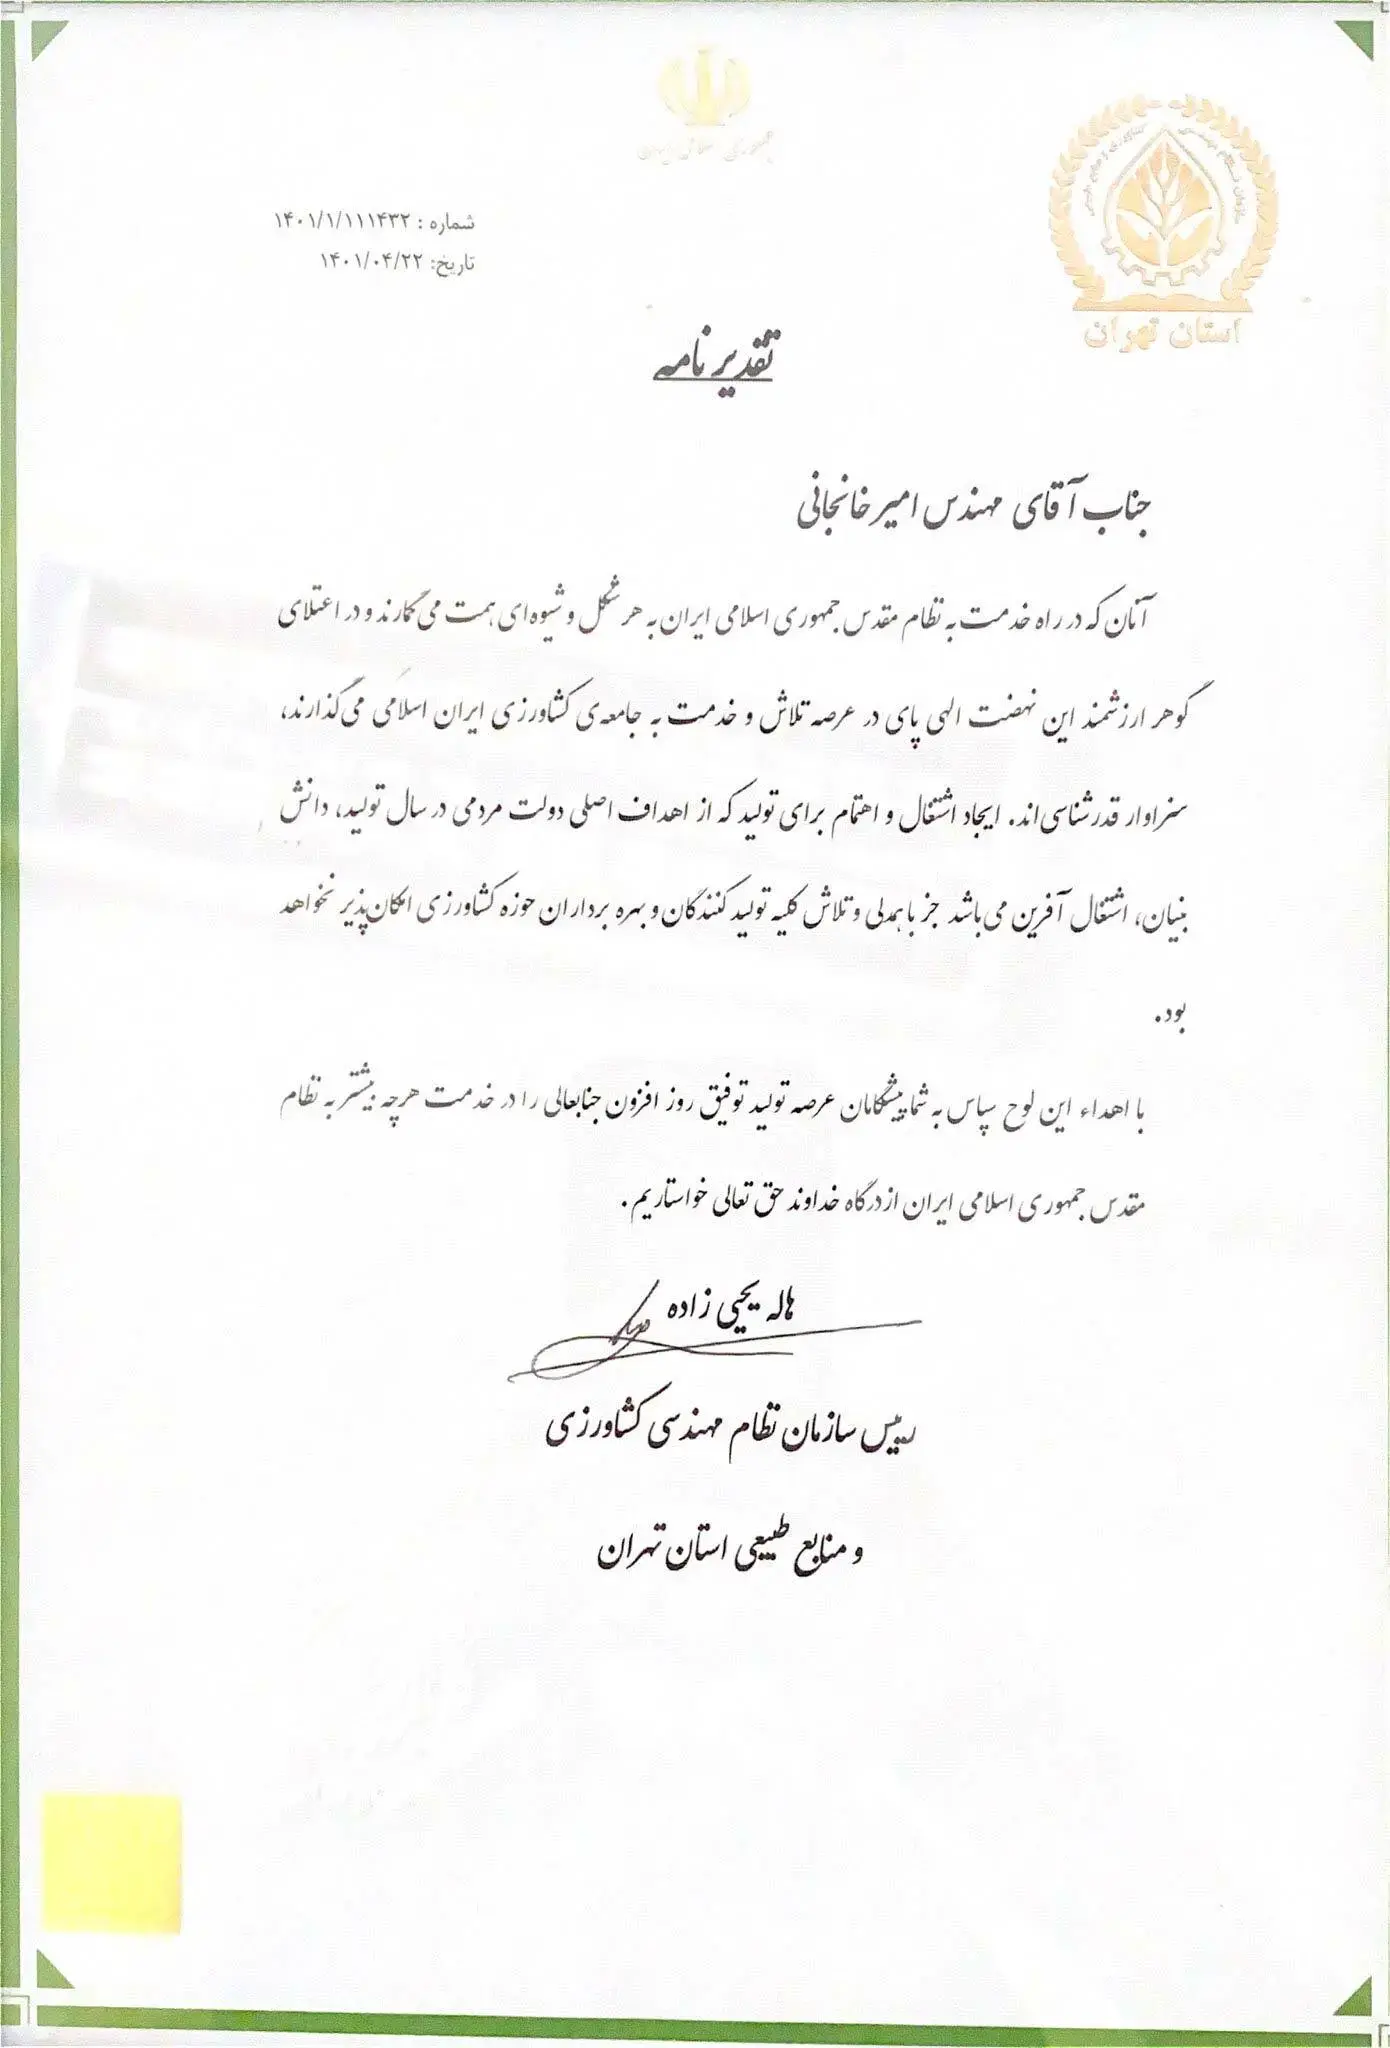 جمهوری اسلامی ایران
سازمان نظام مهندسی کشاورزی و منابع طبیعی
استان تهران
شماره : ۱۴۰۱/۱/۱۱۱۴۳۲
تاریخ: ۱۴۰۱/۰۴/۲۲
تقدیر نامه
جناب آقای مهندس امیر خانجانی
آنان که در راه خدمت به نظام مقدس جمهوری اسلامی ایران به هر شکل و شیوه‌ای همت می‌گمارند و در اعتلای
گوهر ارزشمند این نهضت الهی پای در عرصه تلاش و خدمت به جامعه‌ی کشاورزی ایران اسلامی می‌گذارند،
سزاوار قدرشناسی‌اند. ایجاد اشتغال و اهتمام برای تولید که از اهداف اصلی دولت مردمی در سال تولید، دانش
بنیان، اشتغال آفرین می‌باشد جز با همدلی و تلاش کلیه تولید کنندگان و بهره برداران حوزه کشاورزی امکان‌پذیر نخواهد
بود.
با اهداء این لوح سپاس به شما پیشگامان عرصه تولید توفیق روز افزون جنابعالی را در خدمت هرچه بیشتر به نظام
مقدس جمهوری اسلامی ایران از درگاه خداوند حق تعالی خواستاریم.
هاله یحیی زاده
رییس سازمان نظام مهندسی کشاورزی
و منابع طبیعی استان تهران